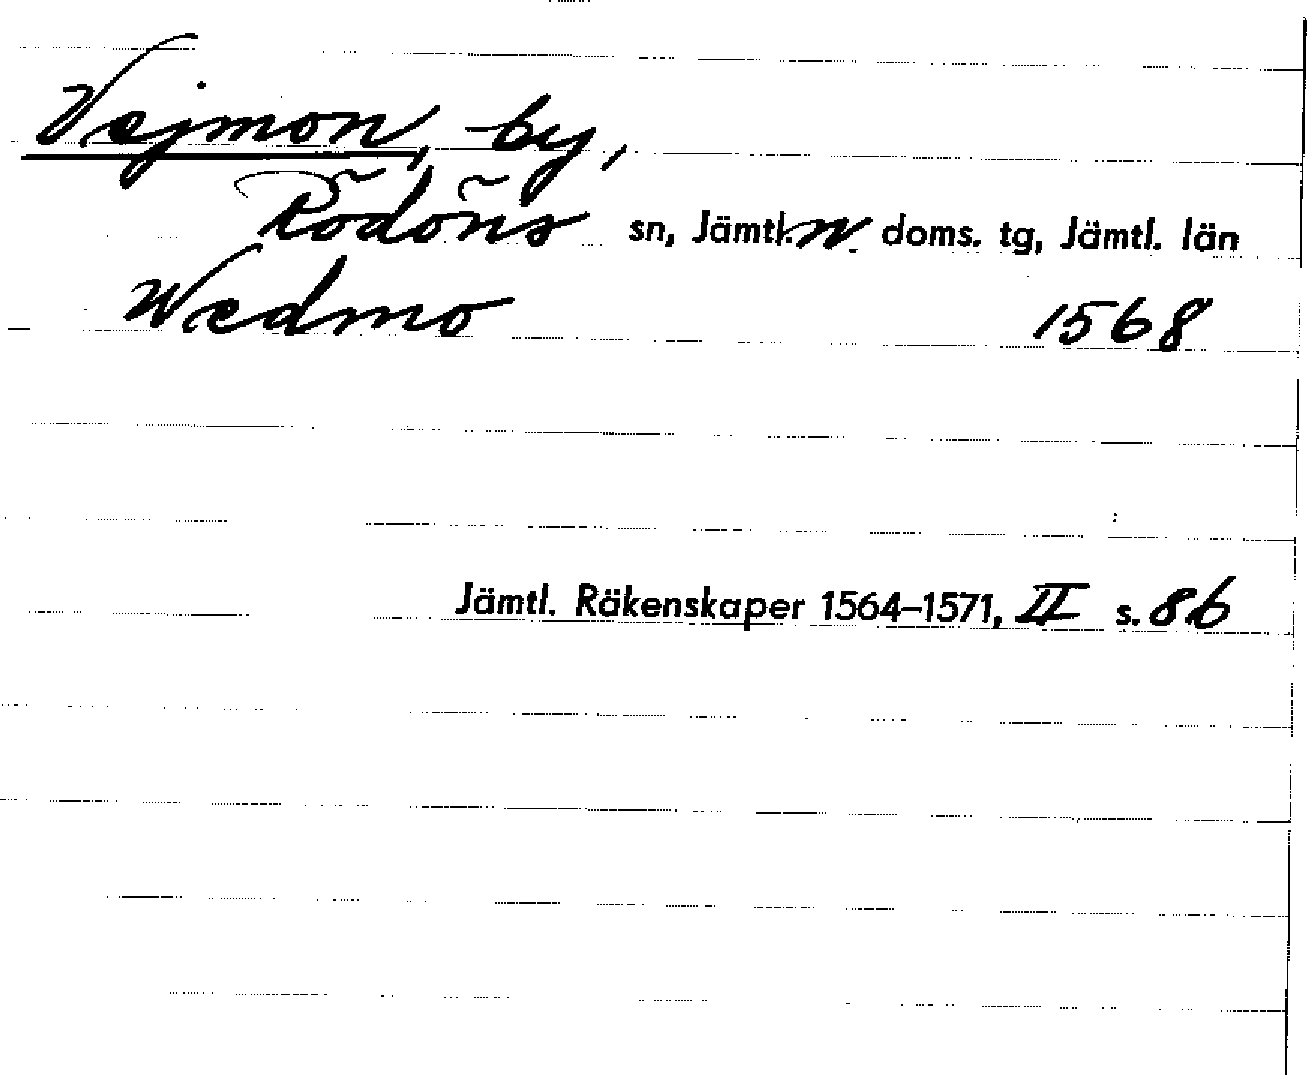 Vejmon, by,
Rödöns sn, Jämtl. n. doms. tg, Jämtl. län
Wedmo 1568
Jämtl. Räkenskaper 1564–1571, II s. 86